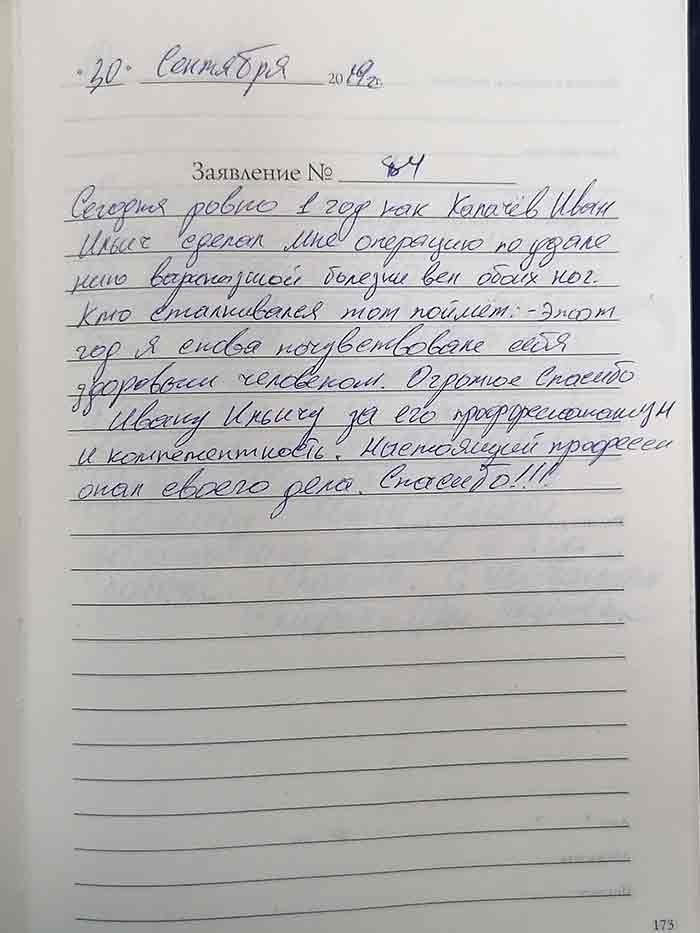 "30" Сентября 2019г.
Заявление № 84
Сегодня ровно 1 год как Калачёв Иван
Ильич сделал мне операцию по удале
нию варикозной болезни вен обоих ног.
Кто сталкивался тот поймёт: - Этот
год я снова почувствовала себя
здоровым человеком. Огромное Спасибо
Ивану Ильичу за его профессионализм
и компетентность. Настоящий професси
онал своего дела. Спасибо!!!
173